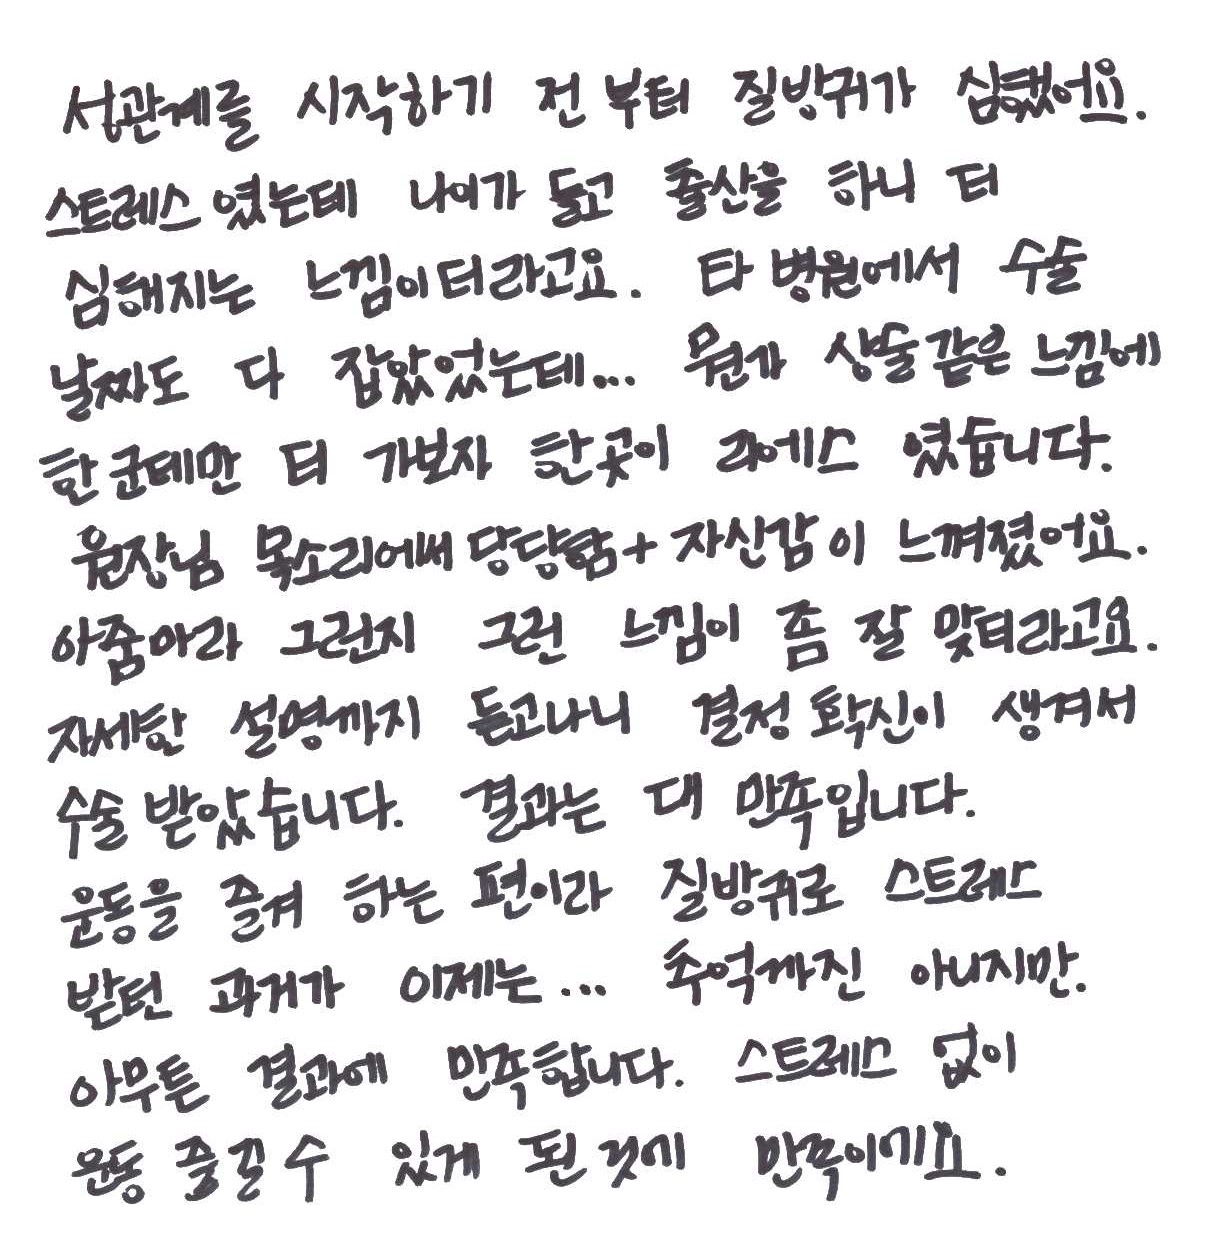 성관계를 시작하기 전부터 질방귀가 심했어요.
스트레스였는데 나이가 들고 출산을 하니 더
심해지는 느낌이더라고요. 타 병원에서 수술
날짜도 다 잡았었는데... 뭔가 상술같은 느낌에
한군데만 더 가보자 한곳이 라에스 였습니다.
원장님 목소리에써 당당함+자신감이 느껴졌어요.
아줌마라 그런지 그런 느낌이 좀 잘 맞더라고요.
자세한 설명까지 듣고나니 결정 확신이 생겨서
수술 받았습니다. 결과는 대 만족입니다.
운동을 즐겨 하는 편이라 질방귀로 스트레스
받던 과거가 이제는... 추억까진 아니지만.
아무튼 결과에 만족합니다. 스트레스 없이
운동 즐길 수 있게 된것에 만족이에요.